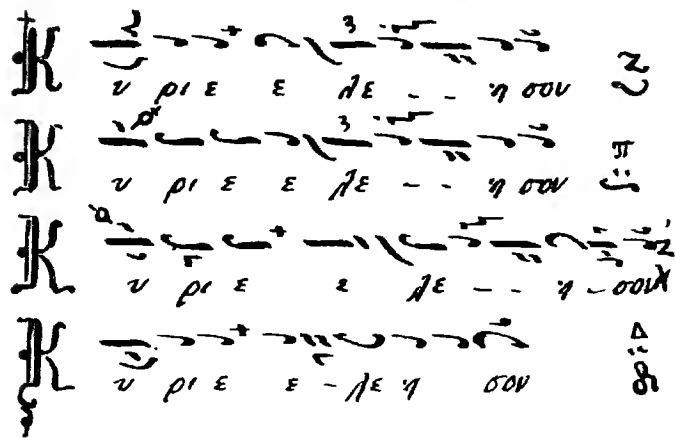 Κ υ ρι ε ε λε - - η σον Ζ
Κ υ ρι ε ε λε - - η σον π
Κ υ ρι ε ε λε - - η - σον Ζ
Κ υ ρι ε ε - λε η σον Δ